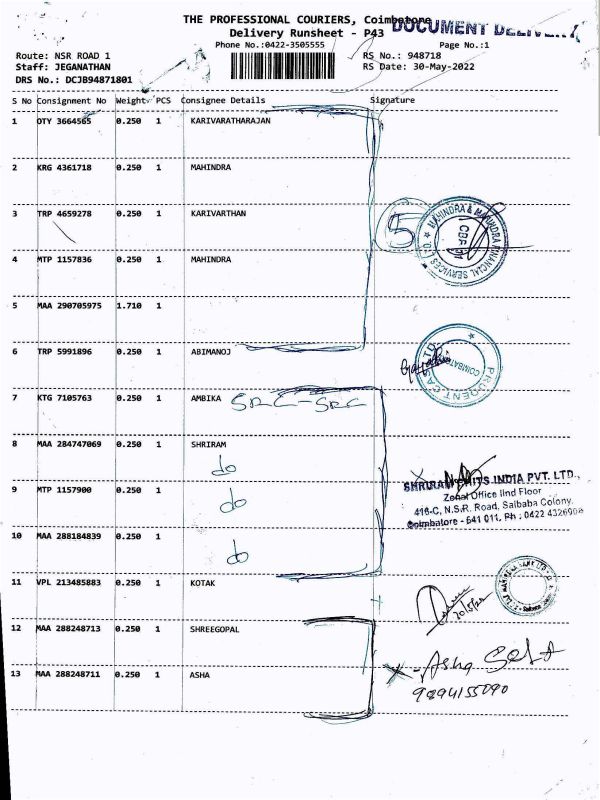 THE PROFESSIONAL COURIERS, Coimbatore
DOCUMENT DELIVERY
Delivery Runsheet - P43
Phone No.:0422-3505555
Page No.:1
Route: NSR ROAD 1
RS No.: 948718
Staff: JEGANATHAN
RS Date: 30-May-2022
DRS No.: DCJB94871801
S No Consignment No Weight PCS Consignee Details Signature
1 OTY 3664565 0.250 1 KARIVARATHARAJAN
2 KRG 4361718 0.250 1 MAHINDRA
3 TRP 4659278 0.250 1 KARIVARTHAN
5
MAHINDRA & MAHINDRA FINANCIAL SERVICES LTD
CBE
4 MTP 1157836 0.250 1 MAHINDRA
5 MAA 290705975 1.710 1
6 TRP 5991896 0.250 1 ABIMANOJ
PRUDENT CAS LTD
COIMBATORE
7 KTG 7105763 0.250 1 AMBIKA SRC-SRC
8 MAA 284747069 0.250 1 SHRIRAM
do
SHRIRAM CHITS INDIA PVT. LTD.,
Zonal Office IInd Floor
416-C, N.S.R. Road, Saibaba Colony.
Coimbatore - 641 011. Ph : 0422 4326908
9 MTP 1157900 0.250 1
do
10 MAA 288184839 0.250 1
do
11 VPL 213485883 0.250 1 KOTAK
30/5/22
12 MAA 288248713 0.250 1 SHREEGOPAL
X - Asha
13 MAA 288248711 0.250 1 ASHA
9894155090